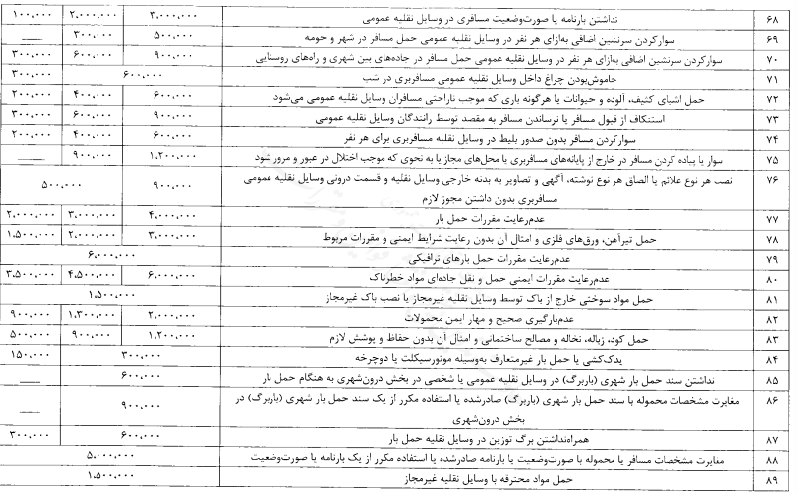 ۶۸ نداشتن بارنامه یا صورت‌وضعیت مسافری در وسایل نقلیه عمومی ۳،۰۰۰،۰۰۰ ۲،۰۰۰،۰۰۰ ۱۰۰،۰۰۰
۶۹ سوارکردن سرنشین اضافی به‌ازای هر نفر در وسایل نقلیه عمومی حمل مسافر در شهر و حومه ۵۰۰،۰۰۰ ۳۰۰،۰۰۰ ــــ
۷۰ سوارکردن سرنشین اضافی به‌ازای هر نفر در وسایل نقلیه عمومی حمل مسافر در جاده‌های بین شهری و راه‌های روستایی ۹۰۰،۰۰۰ ۶۰۰،۰۰۰ ۳۰۰،۰۰۰
۷۱ خاموش‌بودن چراغ داخل وسایل نقلیه عمومی مسافربری در شب ۶۰۰،۰۰۰ ۳۰۰،۰۰۰
۷۲ حمل اشیای کثیف، آلوده و حیوانات یا هرگونه باری که موجب ناراحتی مسافران وسایل نقلیه عمومی می‌شود ۶۰۰،۰۰۰ ۴۰۰،۰۰۰ ۲۰۰،۰۰۰
۷۳ استنکاف از قبول مسافر یا نرساندن مسافر به مقصد توسط رانندگان وسایل نقلیه عمومی ۹۰۰،۰۰۰ ۶۰۰،۰۰۰ ۳۰۰،۰۰۰
۷۴ سوارکردن مسافر بدون صدور بلیط در وسایل نقلیه مسافربری برای هر نفر ۶۰۰،۰۰۰ ۴۰۰،۰۰۰ ۲۰۰،۰۰۰
۷۵ سوار یا پیاده کردن مسافر در خارج از پایانه‌های مسافربری یا محل‌های مجاز یا به نحوی که موجب اختلال در عبور و مرور شود ۱،۲۰۰،۰۰۰ ۹۰۰،۰۰۰ ــــ
۷۶ نصب هر نوع علائم یا الصاق هر نوع نوشته، آگهی و تصاویر به بدنه خارجی وسایل نقلیه و قسمت درونی وسایل نقلیه عمومی ۹۰۰،۰۰۰ ۵۰۰،۰۰۰
مسافربری بدون داشتن مجوز لازم
۷۷ عدم‌رعایت مقررات حمل بار ۴،۰۰۰،۰۰۰ ۳،۰۰۰،۰۰۰ ۲،۰۰۰،۰۰۰
۷۸ حمل تیرآهن، ورق‌های فلزی و امثال آن بدون رعایت شرایط ایمنی و مقررات مربوط ۳،۰۰۰،۰۰۰ ۲،۰۰۰،۰۰۰ ۱،۵۰۰،۰۰۰
۷۹ عدم‌رعایت مقررات حمل بارهای ترافیکی ۶،۰۰۰،۰۰۰
۸۰ عدم‌رعایت مقررات ایمنی حمل و نقل جاده‌ای مواد خطرناک ۶،۰۰۰،۰۰۰ ۴،۵۰۰،۰۰۰ ۳،۵۰۰،۰۰۰
۸۱ حمل مواد سوختی خارج از باک توسط وسایل نقلیه غیرمجاز یا نصب باک غیرمجاز ۱،۵۰۰،۰۰۰
۸۲ عدم‌بارگیری صحیح و مهار ایمن محمولات ۲،۰۰۰،۰۰۰ ۱،۳۰۰،۰۰۰ ۹۰۰،۰۰۰
۸۳ حمل کود، زباله، نخاله و مصالح ساختمانی و امثال آن بدون حفاظ و پوشش لازم ۱،۲۰۰،۰۰۰ ۹۰۰،۰۰۰ ۵۰۰،۰۰۰
۸۴ یدک‌کشی یا حمل بار غیرمتعارف به‌وسیله موتورسیکلت یا دوچرخه ۳۰۰،۰۰۰ ۱۵۰،۰۰۰
۸۵ نداشتن سند حمل بار شهری (باربرگ) در وسایل نقلیه عمومی یا شخصی در بخش درون‌شهری به هنگام حمل بار ۶۰۰،۰۰۰ ــــ
۸۶ مغایرت مشخصات محموله با سند حمل بار شهری (باربرگ) صادرشده یا استفاده مکرر از یک سند حمل بار شهری (باربرگ) در ۹۰۰،۰۰۰ ــــ
بخش درون‌شهری
۸۷ همراه‌نداشتن برگ توزین در وسایل نقلیه حمل بار ۶۰۰،۰۰۰ ۳۰۰،۰۰۰
۸۸ مغایرت مشخصات مسافر یا محموله با صورت‌وضعیت یا بارنامه صادرشده، یا استفاده مکرر از یک بارنامه یا صورت‌وضعیت ۵،۰۰۰،۰۰۰
۸۹ حمل مواد محترقه با وسایل نقلیه غیرمجاز ۱،۵۰۰،۰۰۰